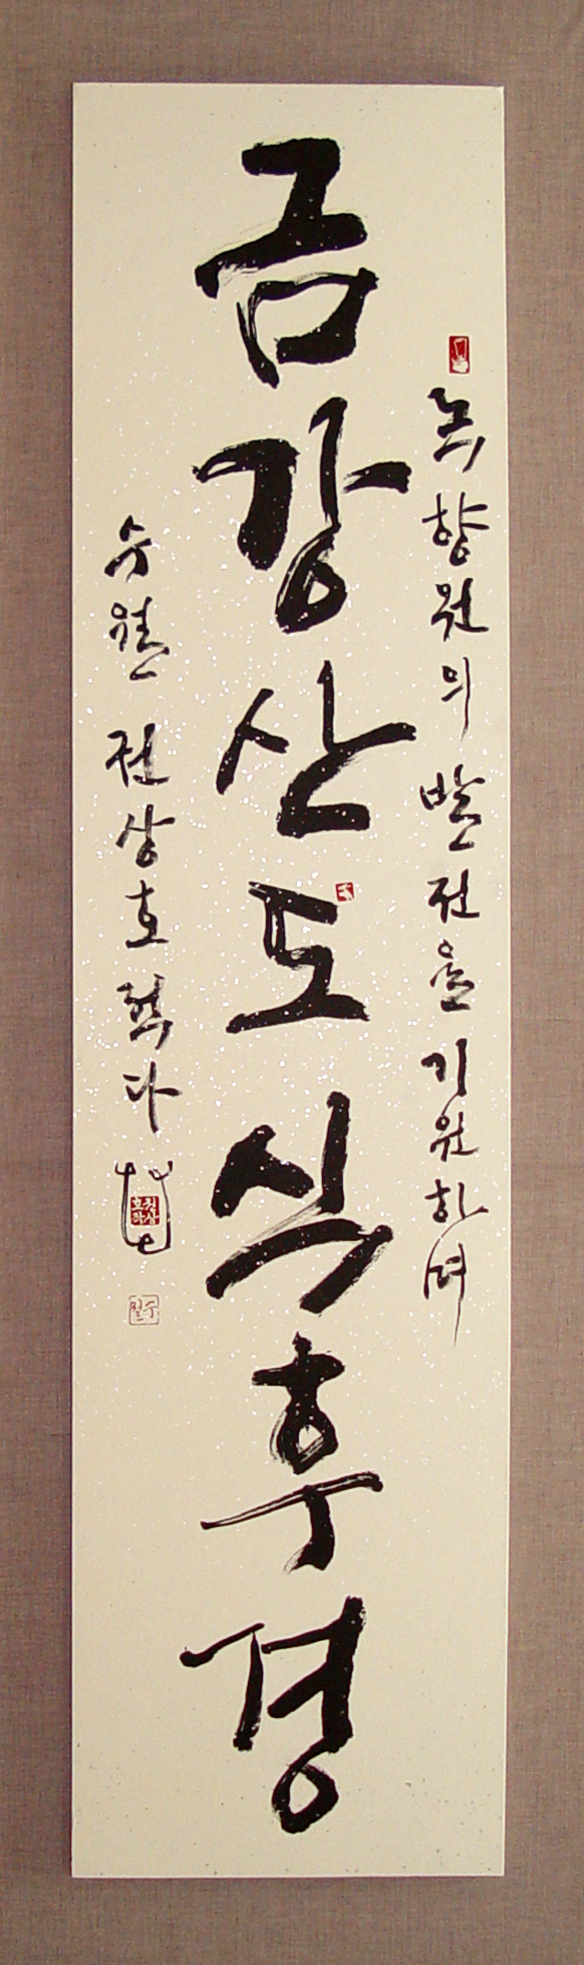 녹향원의 발전을 기원하며
금강산도식후경
수월 전상호 적다